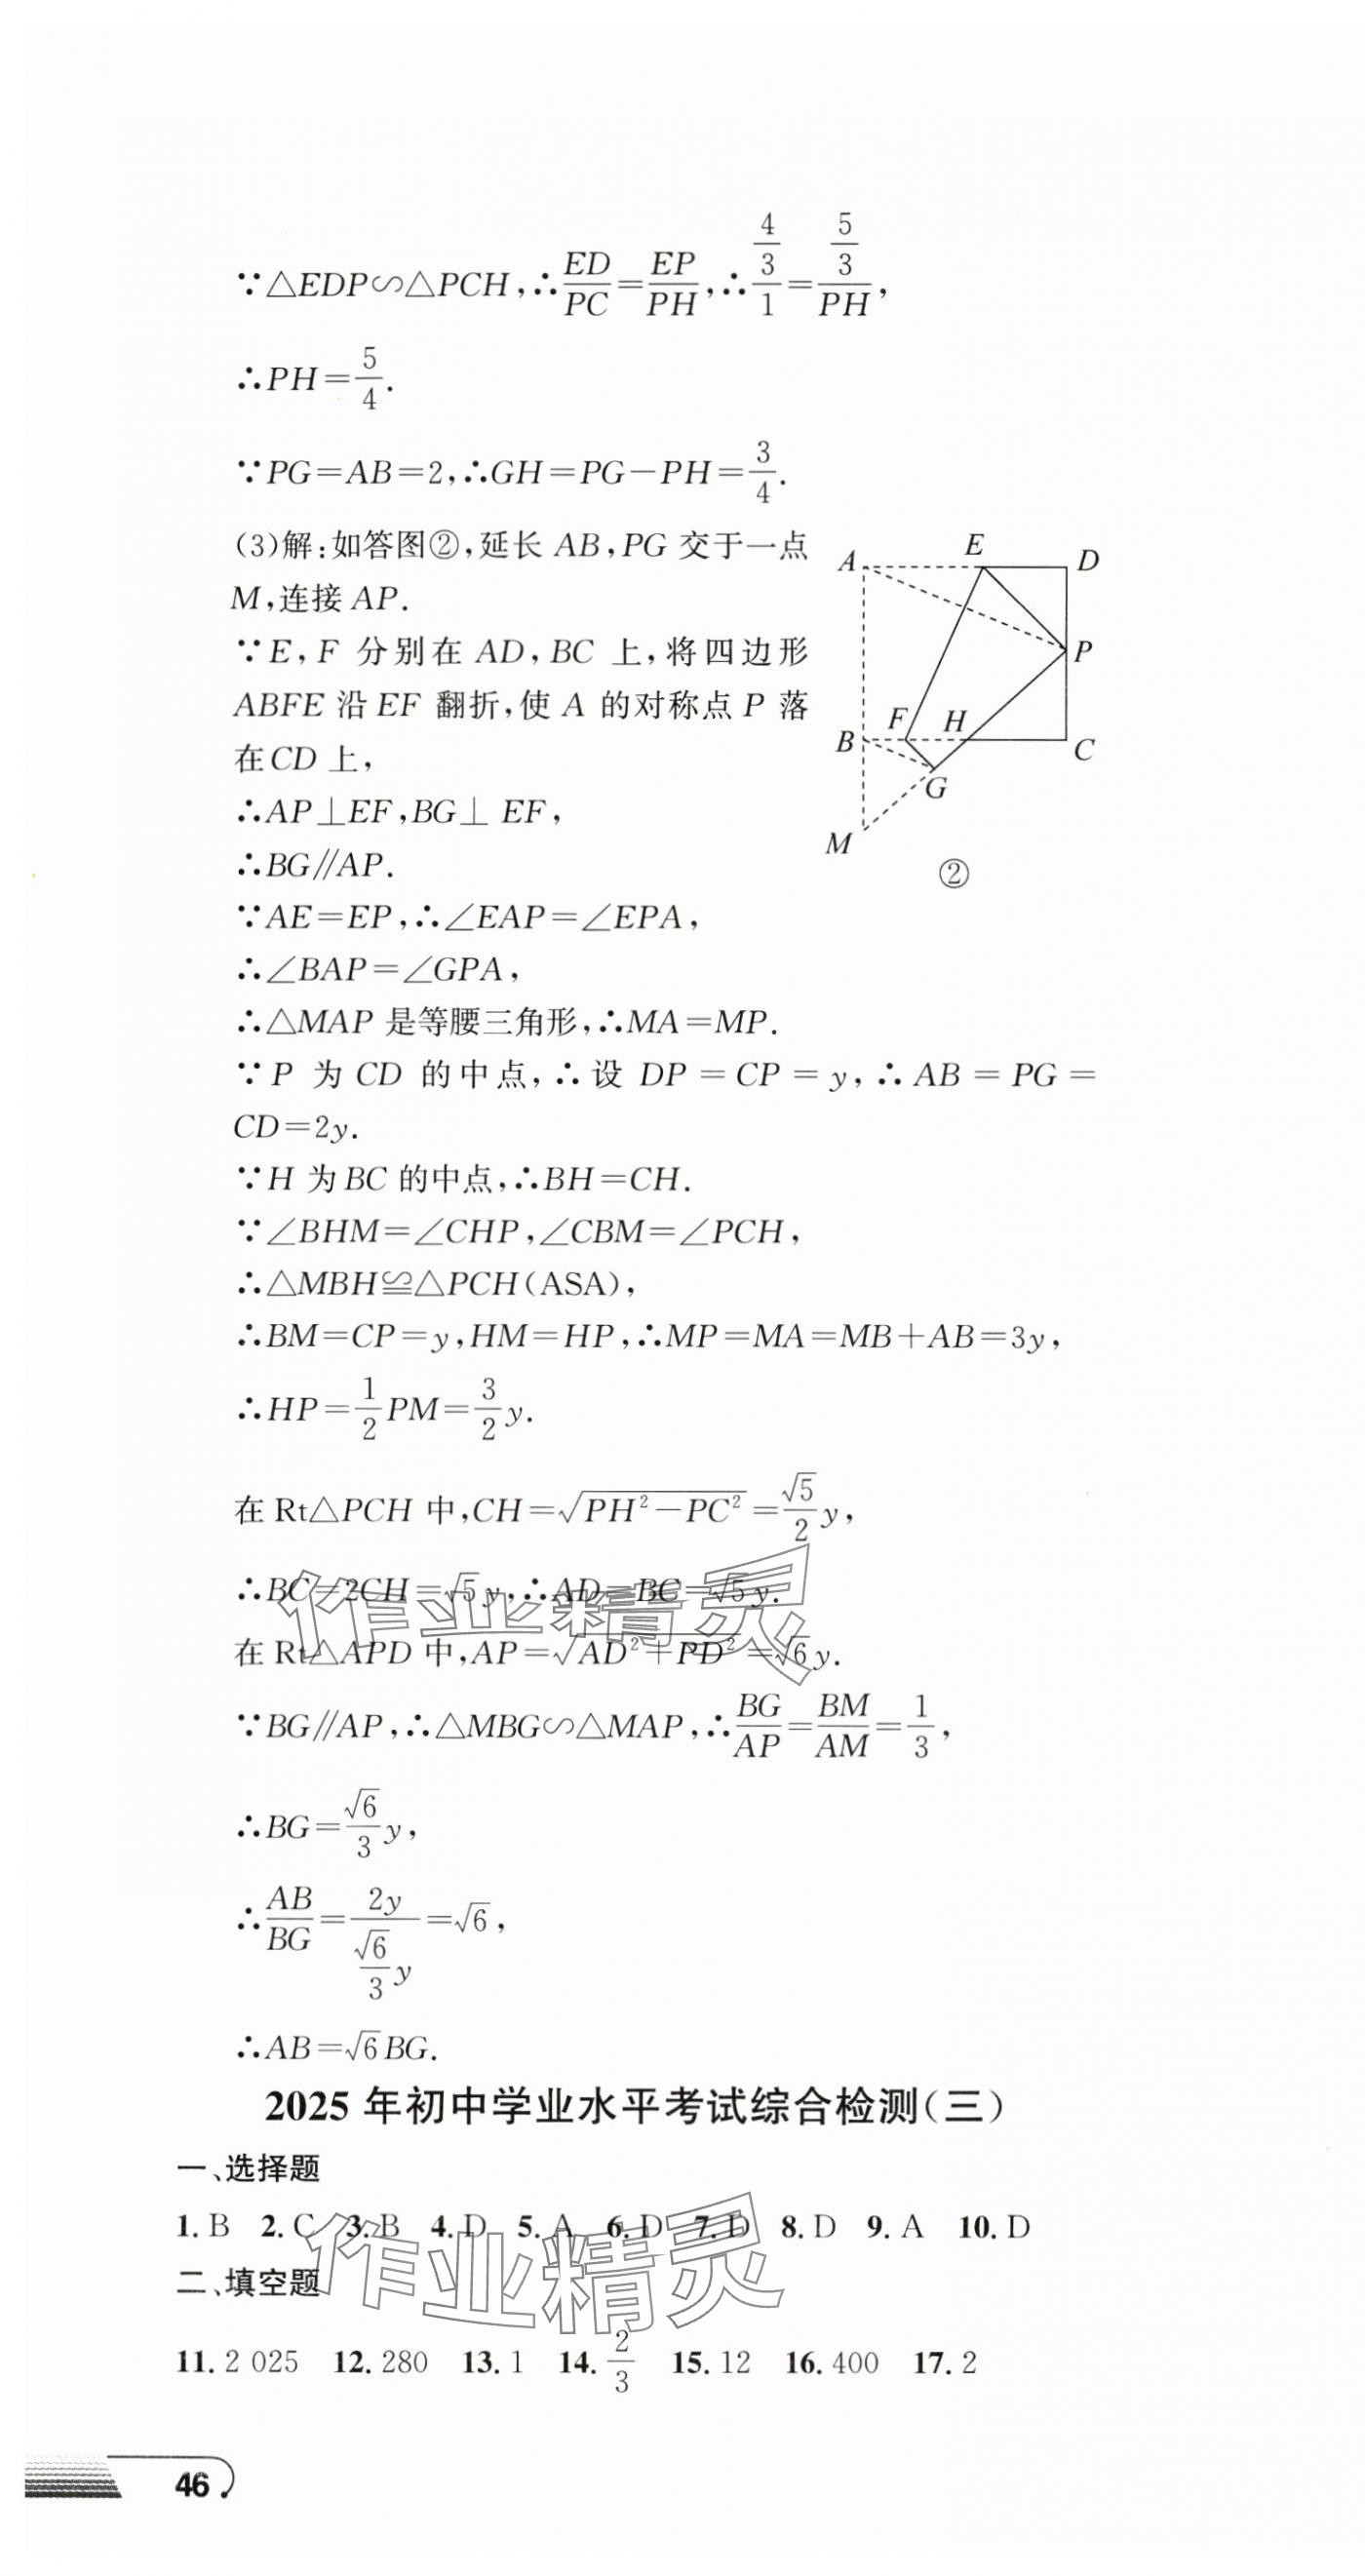 ∵△EDP∽△PCH,∴ED/PC=EP/PH,∴(4/3)/1=(5/3)/PH,
∴PH=5/4.
∵PG=AB=2,∴GH=PG−PH=3/4.
(3)解:如答图②,延长 AB,PG 交于一点
M,连接 AP.
∵E,F 分别在 AD,BC 上,将四边形
ABFE 沿 EF 翻折,使 A 的对称点 P 落
在 CD 上,
∴AP⊥EF,BG⊥EF,
∴BG∥AP.
∵AE=EP,∴∠EAP=∠EPA,
∴∠BAP=∠GPA,
∴△MAP 是等腰三角形,∴MA=MP.
A
E
D
P
B
F
H
C
G
M
②
∵P 为 CD 的中点,∴设 DP=CP=y,∴AB=PG=
CD=2y.
∵H 为 BC 的中点,∴BH=CH.
∵∠BHM=∠CHP,∠CBM=∠PCH,
∴△MBH≌△PCH(ASA),
∴BM=CP=y,HM=HP,∴MP=MA=MB+AB=3y,
∴HP=1/2PM=3/2y.
在 Rt△PCH 中,CH=√(PH²−PC²)=√5/2y,
∴BC=2CH=√5y,∴AD=BC=√5y.
在 Rt△APD 中,AP=√(AD²+PD²)=√6y.
∵BG∥AP,∴△MBG∽△MAP,∴BG/AP=BM/AM=1/3,
∴BG=√6/3y,
∴AB/BG=2y/(√6/3y)=√6,
∴AB=√6BG.
作业精灵
2025 年初中学业水平考试综合检测(三)
一、选择题
1. B 2. C 3. B 4. D 5. A 6. D 7. D 8. D 9. A 10. D
作业精灵
二、填空题
11. 2 025 12. 280 13. 1 14. 2/3 15. 12 16. 400 17. 2
46